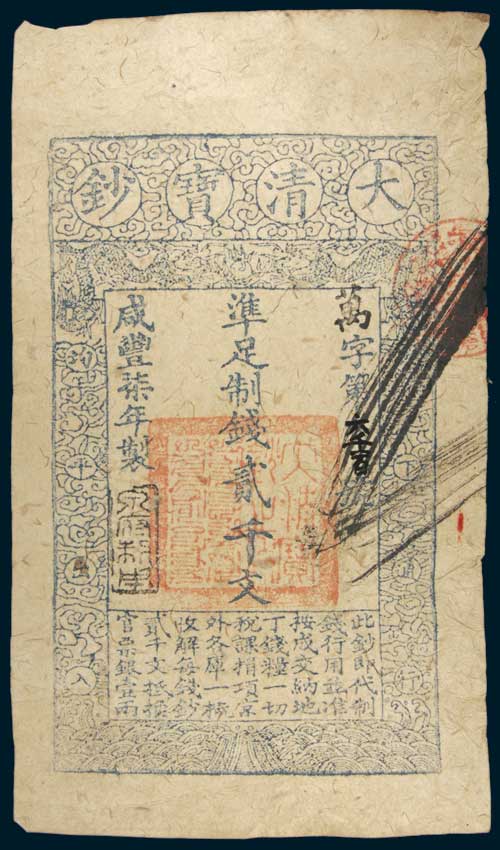 大清寶鈔
下通行
萬字第
準足制錢貳千文
咸豐柒年製
均平出入
此鈔即代制
錢行用並准
按成交納地
丁錢糧一切
稅課捐項京
外各庫一概
收解每錢鈔
貳千文抵換
官票銀壹兩